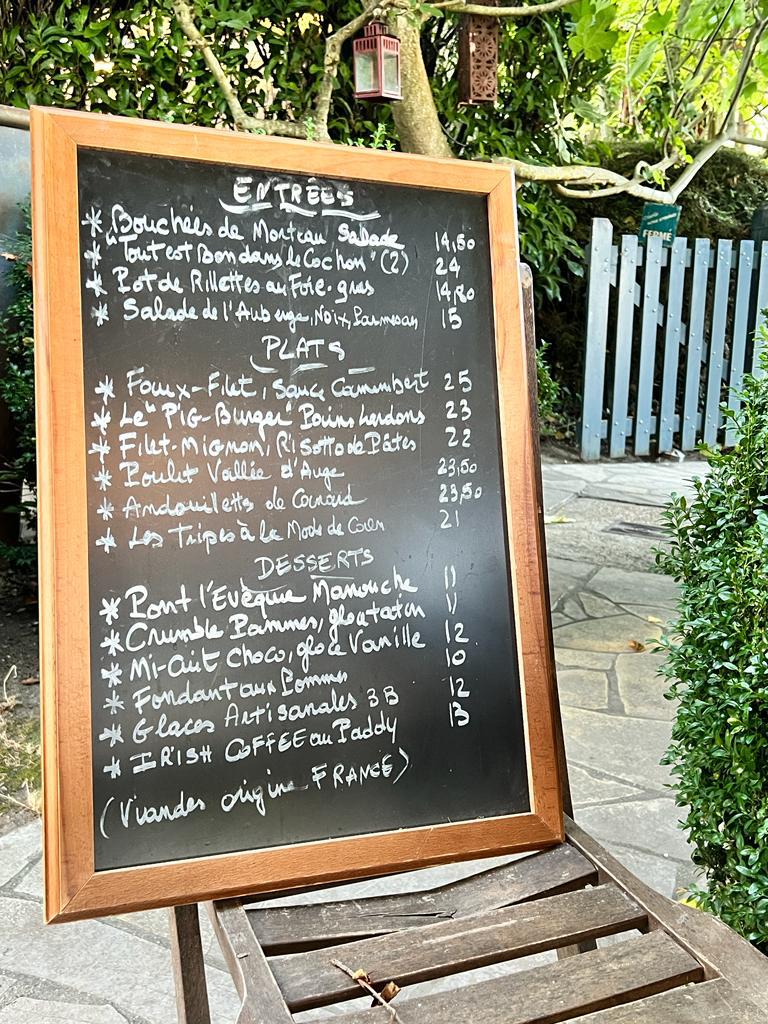 ENTRÉES
* Bouchées de Morteau Salade 14,50
* "Tout est Bon dans le Cochon" (2) 24
* Pot de Rillettes au Foie-gras 14,80
* Salade de l'Auberge, Noix, Parmesan 15
PLATS
* Faux-Filet, Sauce Camembert 25
* Le "PIG-Burger" Pains Lardons 23
* Filet-Mignon, Risotto de Pâtes 22
* Poulet Vallée d'Auge 23,50
* Andouillette de Canard 23,50
* Les Tripes à la Mode de Caen 21
DESSERTS
* Pont l'Evèque Manouche 11
* Crumble Pommes, glace tatin 11
* Mi-Cuit Choco, glace Vanille 12
* Fondant aux Pommes 10
* Glaces Artisanales 3B 12
* IRISH COFFEE au Paddy 13
(Viandes origine FRANCE)
FERMÉ